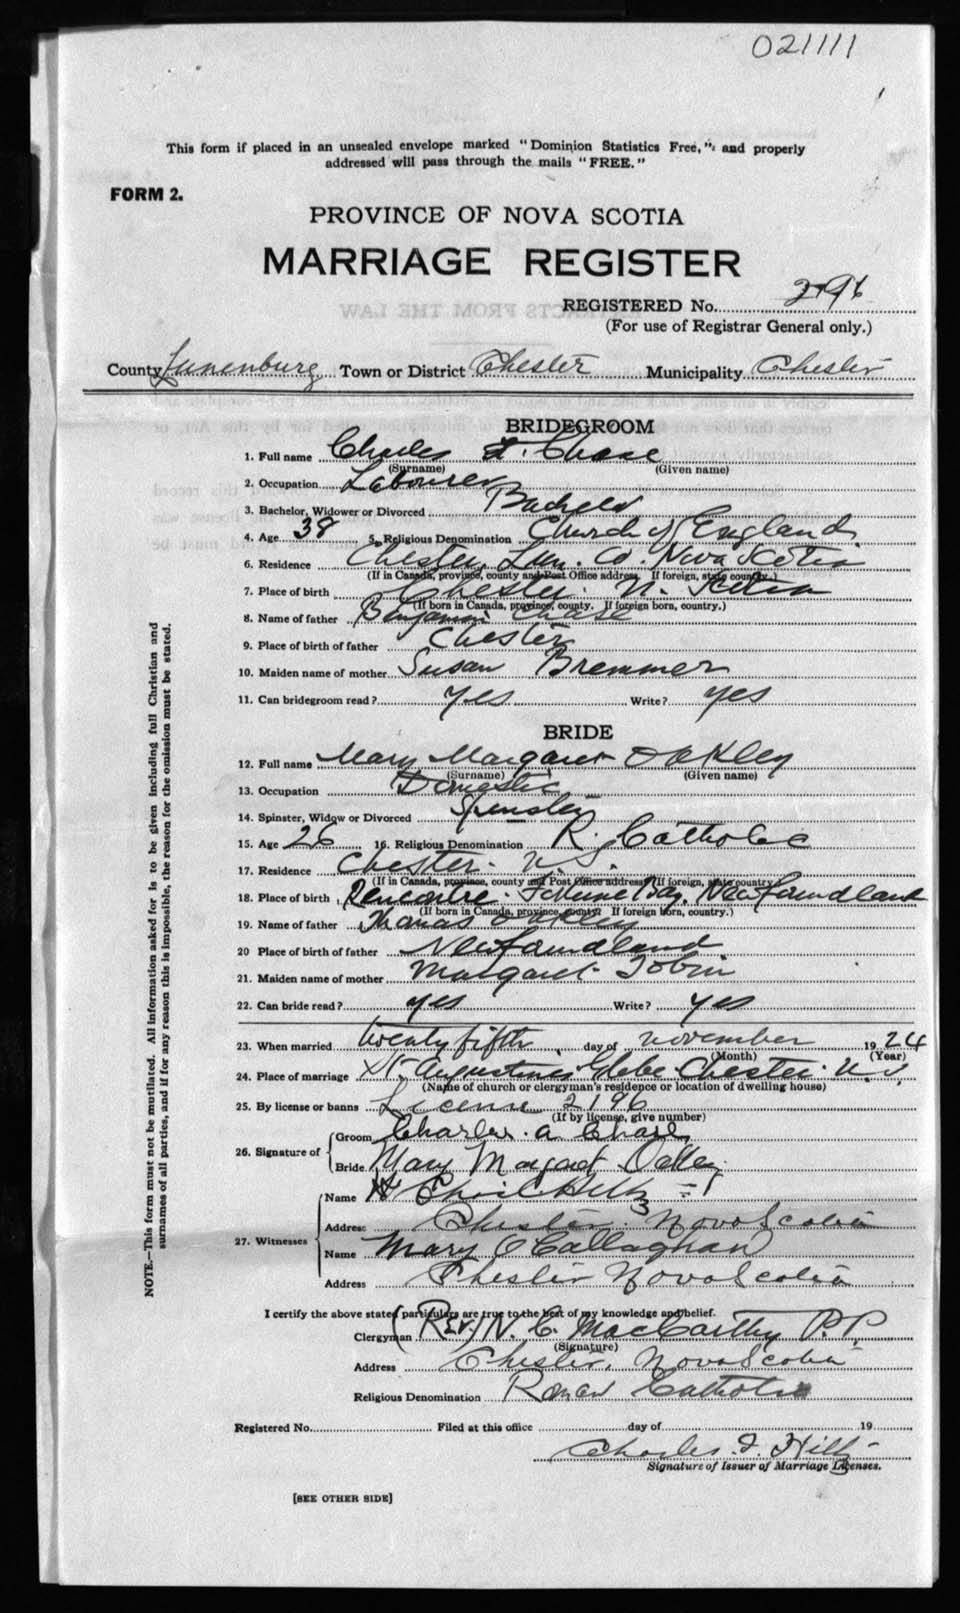 021111
This form if placed in an unsealed envelope marked "Dominion Statistics Free," and properly
addressed will pass through the mails "FREE."
FORM 2.
PROVINCE OF NOVA SCOTIA
MARRIAGE REGISTER
REGISTERED No. 2196
(For use of Registrar General only.)
County Lunenburg Town or District Chester Municipality Chester
BRIDEGROOM
1. Full name Charles Chase
(Surname) (Given name)
2. Occupation Labourer
3. Bachelor, Widower or Divorced Bachelor
4. Age 38 5. Religious Denomination Church of England
6. Residence Chester, Lun. Co. Nova Scotia
(If in Canada, province, county and Post Office address. If foreign, state country.)
7. Place of birth Chester N. Scotia
(If born in Canada, province, county. If foreign born, country.)
8. Name of father Benjamin Chase
9. Place of birth of father Chester
10. Maiden name of mother Susan Bremner
11. Can bridegroom read? yes Write? yes
BRIDE
12. Full name Mary Margaret Oakley
(Surname) (Given name)
13. Occupation Domestic
14. Spinster, Widow or Divorced Spinster
15. Age 26 16. Religious Denomination R. Catholic
17. Residence Chester N.S.
(If in Canada, province, county and Post Office address. If foreign, state country.)
18. Place of birth Rencontre Fortune Bay, Newfoundland
(If born in Canada, province, county. If foreign born, country.)
19. Name of father Thomas Oakley
20 Place of birth of father Newfoundland
21. Maiden name of mother Margaret Tobin
22. Can bride read? yes Write? yes
23. When married twenty fifth day of november 1924
(Month) (Year)
24. Place of marriage St. Augustine's Glebe Chester N.S.
(Name of church or clergyman's residence or location of dwelling house)
25. By license or banns License 2196
(If by license, give number)
26. Signature of Groom Charles A Chase
Bride Mary Margaret Oakley
27. Witnesses Name
Address Chester Nova Scotia
Name Mary O'Callaghan
Address Chester Nova Scotia
I certify the above stated particulars are true to the best of my knowledge and belief.
Clergyman (Rev.) N. C. MacCarthy P.P.
(Signature)
Address Chester, Nova Scotia
Religious Denomination Roman Catholic
Registered No. Filed at this office day of 19
Charles Hiltz
Signature of Issuer of Marriage Licenses.
[SEE OTHER SIDE]
NOTE.—This form must not be mutilated. All information asked for is to be given including full Christian and
surnames of all parties, and if for any reason this is impossible, the reason for the omission must be stated.